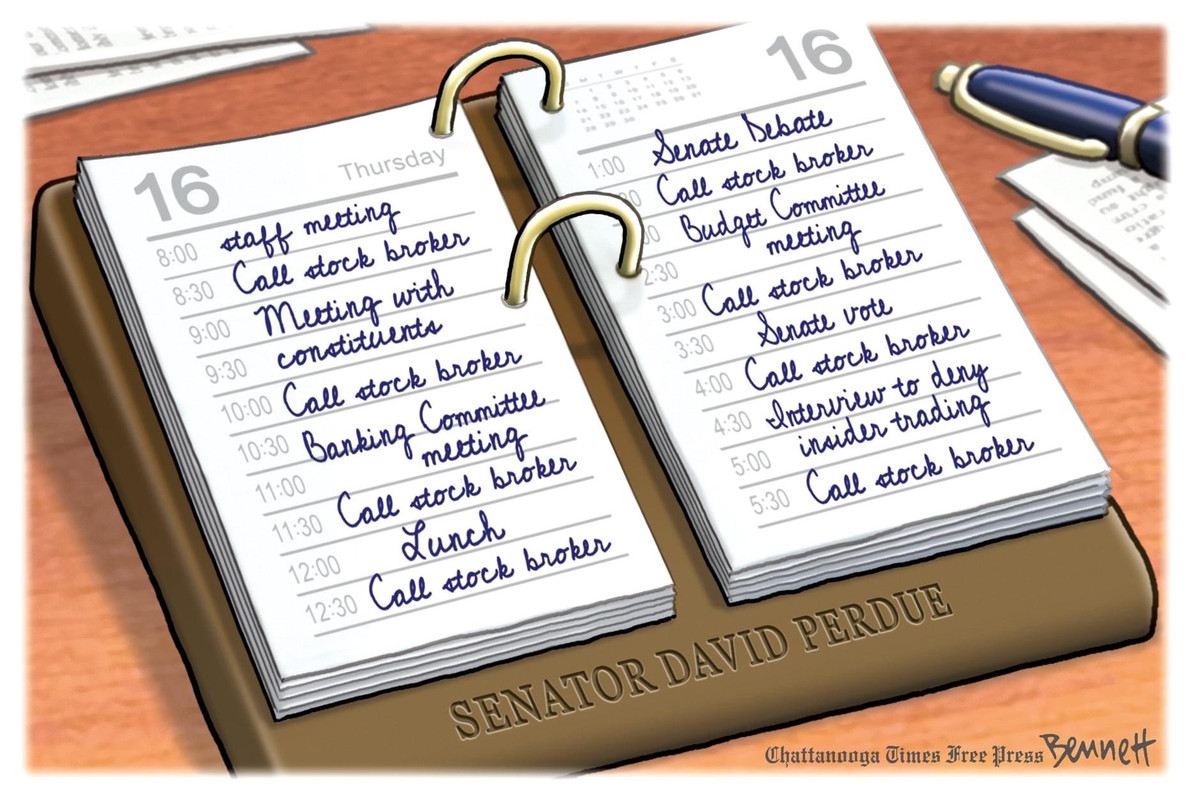 16 Thursday
8:00 staff meeting
8:30 Call stock broker
9:00 Meeting with
9:30 constituents
10:00 Call stock broker
10:30 Banking Committee
11:00 meeting
11:30 Call stock broker
12:00 Lunch
12:30 Call stock broker
16
1:00 Senate Debate
Call stock broker
Budget Committee
2:30 meeting
3:00 Call stock broker
3:30 Senate vote
4:00 Call stock broker
4:30 Interview to deny
5:00 insider trading
5:30 Call stock broker
SENATOR DAVID PERDUE
Chattanooga Times Free Press Bennett